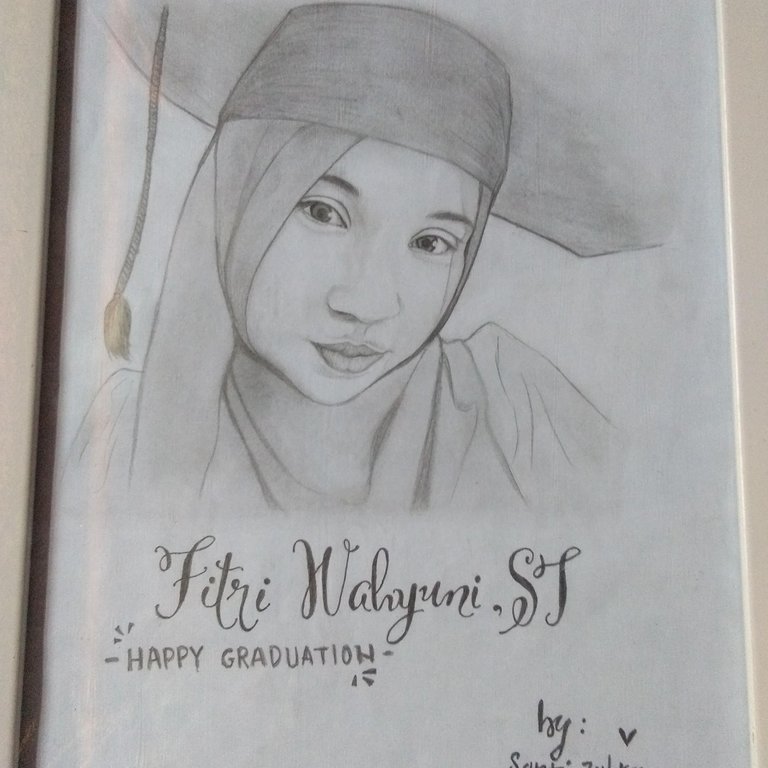 Fitri Wahyuni, ST
- HAPPY GRADUATION -
by: